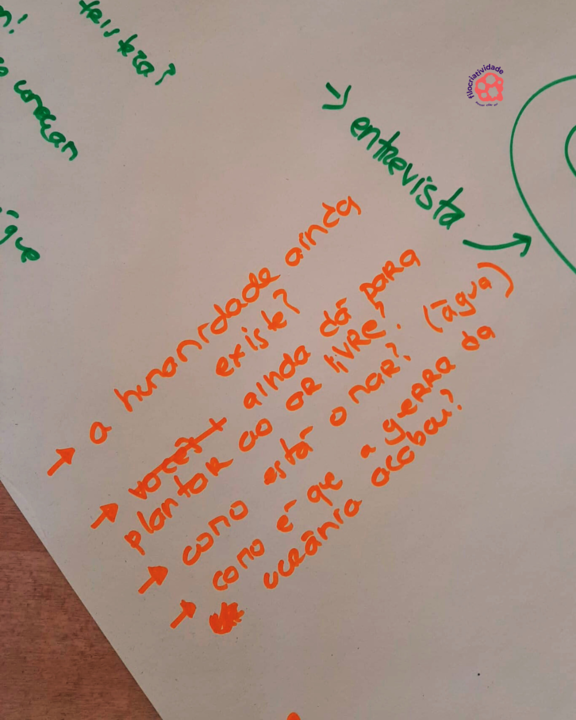 tristeza?
coração
água
filocriatividade
→ entrevista →
→ a humanidade ainda
existe?
→ vocês ainda dá para
plantar ao ar livre?
→ como está o mar? (água)
→ como é que a gerra da
uceânia acabou?